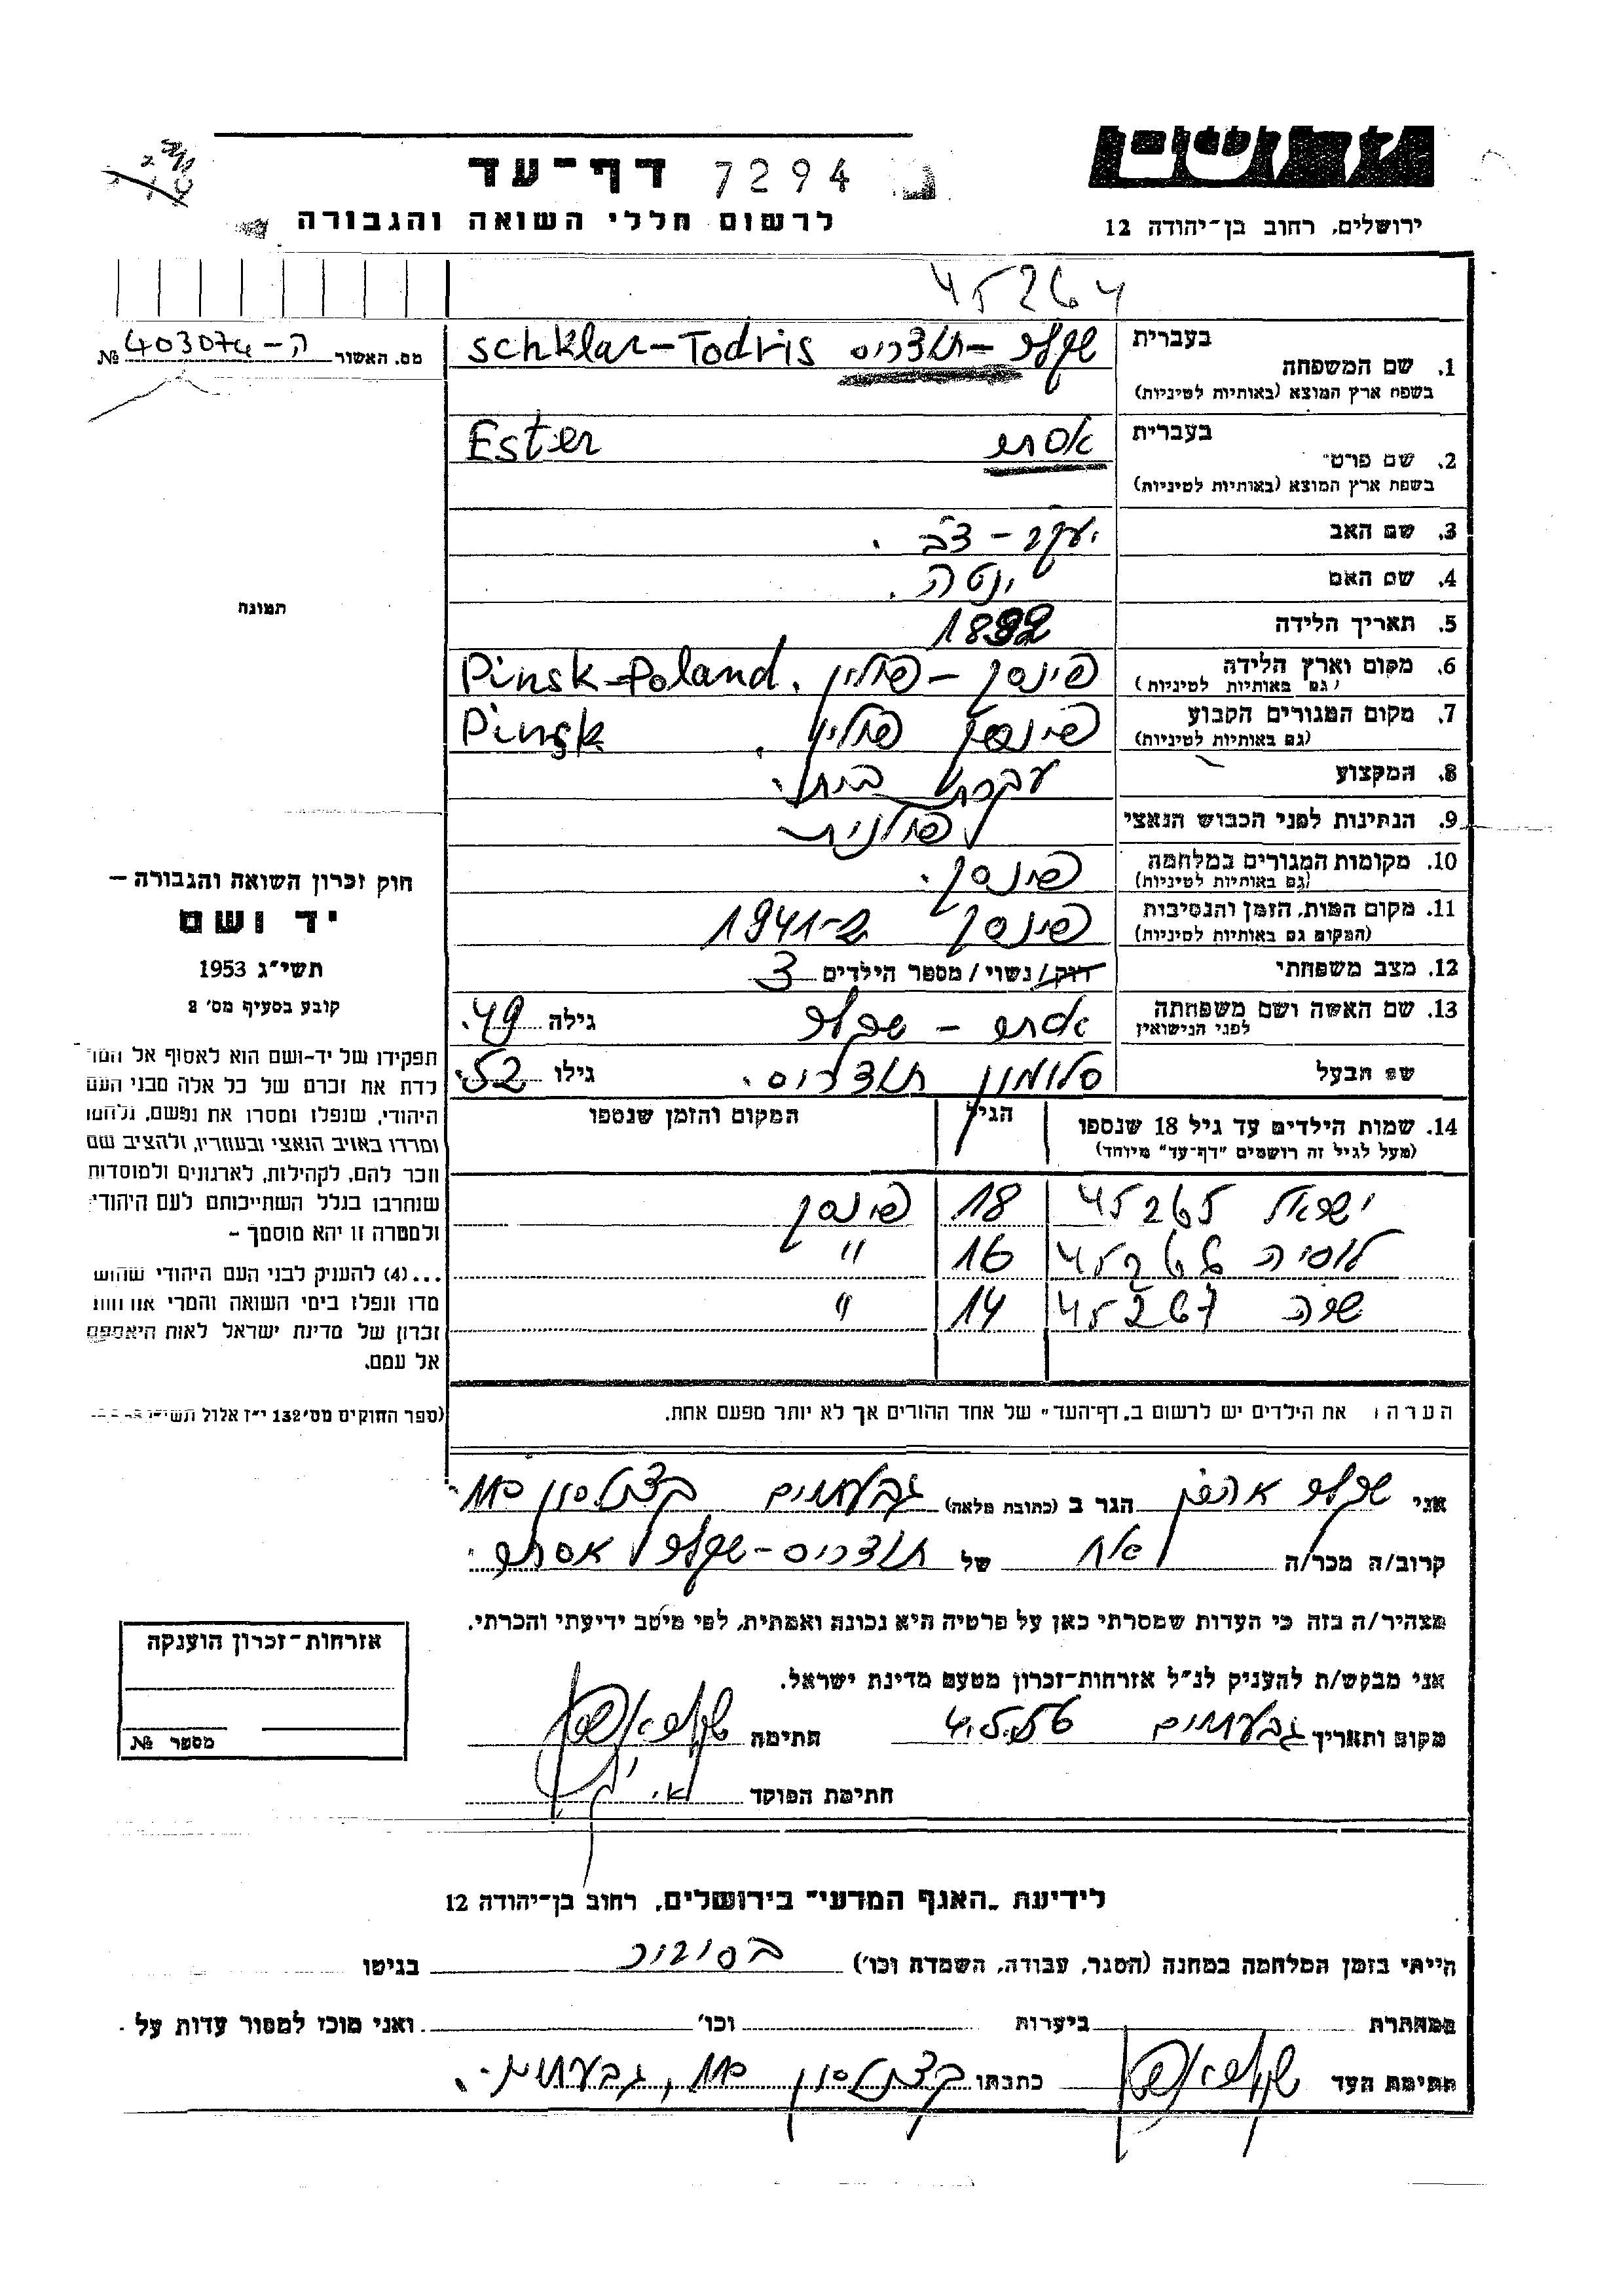 דף-עד 7294
לרשום חללי השואה והגבורה
ירושלים, רחוב בן-יהודה 12
45264
מס. האשור ה-403074 №
בעברית
1. שם המשפחה שקלר-תודריס Schklar-Todris
בשפת ארץ המוצא (באותיות לטיניות)
בעברית
2. שם פרטי אסתר Ester
בשפת ארץ המוצא (באותיות לטיניות)
3. שם האב יעקב-צבי.
4. שם האם ינטה.
5. תאריך הלידה 1892
6. מקום וארץ הלידה פינסק-פולין. Pinsk-Poland
(גם באותיות לטיניות)
7. מקום המגורים הקבוע פינסק פולין. Pinsk
(גם באותיות לטיניות)
8. המקצוע עקרת בית.
9. הנתינות לפני הכבוש הנאצי פולנית
10. מקומות המגורים במלחמה פינסק.
(גם באותיות לטיניות)
11. מקום המות, הזמן והנסיבות פינסק ב-1941
(המקום גם באותיות לטיניות)
12. מצב משפחתי רווק/נשוי/מספר הילדים 3
13. שם האשה ושם משפחתה אסתר - שקלר גילה 49.
לפני הנישואין
שם הבעל סלומון תודריס. גילו 52.
14. שמות הילדים עד גיל 18 שנספו הגיל המקום והזמן שנספו
(מעל לגיל זה רושמים "דף-עד" מיוחד)
ישראל 45265 18 פינסק
לוסיה 45266 16 "
שרה 45267 14 "
הערה: את הילדים יש לרשום ב"דף-העד" של אחד ההורים אך לא יותר מפעם אחת.
תמונה
חוק זכרון השואה והגבורה –
יד ושם
תשי"ג 1953
קובע בסעיף מס' 2
תפקידו של יד-ושם הוא לאסוף אל המו
לדת את זכרם של כל אלה מבני העם
היהודי, שנפלו ומסרו את נפשם, נלחמו
ומרדו באויב הנאצי ובעוזריו, ולהציב שם
וזכר להם, לקהילות, לארגונים ולמוסדות
שנחרבו בגלל השתייכותם לעם היהודי
ולמטרה זו יהא מוסמך –
...(4) להעניק לבני העם היהודי שהוש
מדו ונפלו בימי השואה והמרי אזרחות
זכרון של מדינת ישראל לאות היאספם
אל עמם.
(ספר החוקים מס' 132 י"ז אלול
אני שקלר אהרן הגר ב (כתובת מלאה) גבעתיים כצנלסון
קרוב/ה מכר/ה אח של תודריס-שקלר אסתר.
מצהיר/ה בזה כי העדות שמסרתי כאן על פרטיה היא נכונה ואמתית, לפי מיטב ידיעתי והכרתי.
אני מבקש/ת להעניק לנ"ל אזרחות-זכרון מטעם מדינת ישראל.
מקום ותאריך גבעתיים 4.5.56 חתימה
חתימת הפוקד
אזרחות-זכרון הוענקה
מספר №
לידיעת "האגף המדעי" בירושלים, רחוב בן-יהודה 12
הייתי בזמן המלחמה במחנה (הסגר, עבודה, השמדה וכו') בגיטו
במחתרת ביערות וכו' ואני מוכן למסור עדות על
חתימת העד כתבתו כצנלסון גבעתיים.